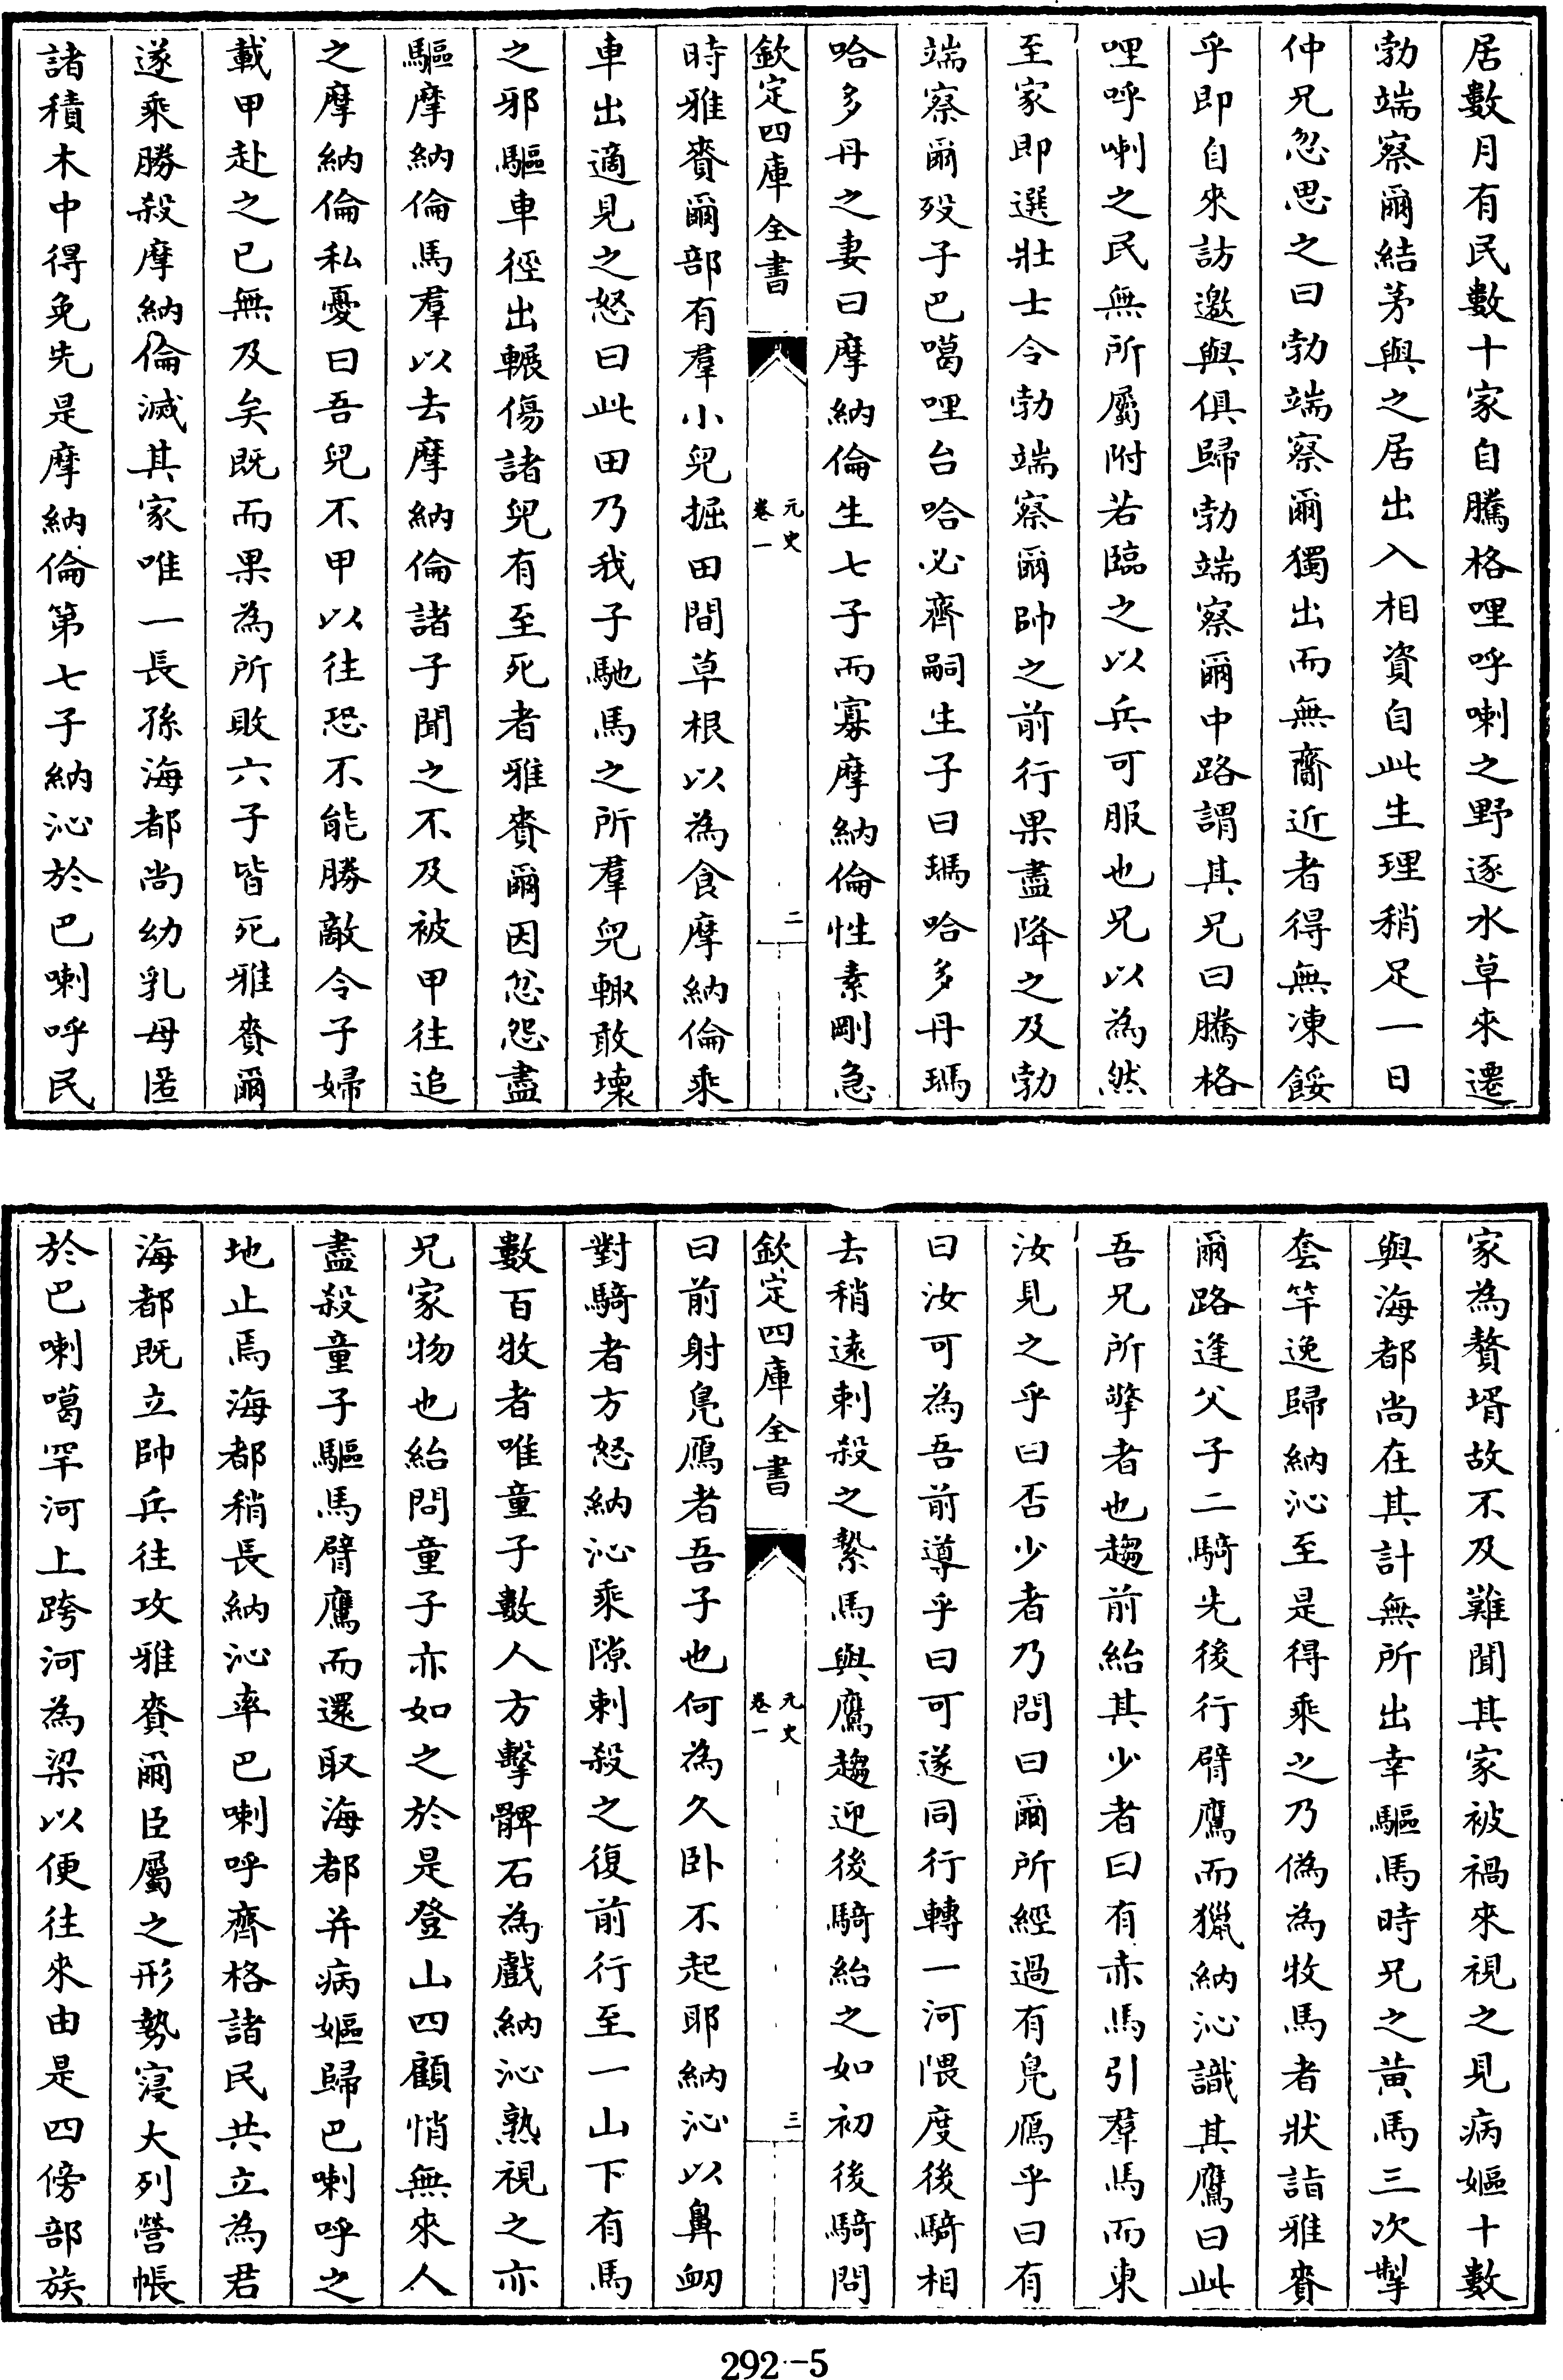 居數月有民數十家自騰格哩呼喇之野逐水草來遷
勃端察爾結茅與之居出入相資自此生理稍足一日
仲兄忽思之曰勃端察爾獨出而無齎近者得無凍餒
乎即自來訪邀與俱歸勃端察爾中路謂其兄曰騰格
哩呼喇之民無所屬附若臨之以兵可服也兄以為然
至家即選壯士令勃端察爾帥之前行果盡降之及勃
端察爾歿子巴噶哩台哈必齊嗣生子曰瑪哈多丹瑪
哈多丹之妻曰摩納倫生七子而寡摩納倫性素剛急
欽定四庫全書
元史
卷一
二
時雅賚爾部有羣小兒掘田間草根以為食摩納倫乘
車出適見之怒曰此田乃我子馳馬之所羣兒輙敢壞
之邪驅車徑出輾傷諸兒有至死者雅賚爾因忿怨盡
驅摩納倫馬羣以去摩納倫諸子聞之不及被甲往追
之摩納倫私憂曰吾兒不甲以往恐不能勝敵令子婦
載甲赴之已無及矣既而果為所敗六子皆死雅賚爾
遂乘勝殺摩納倫滅其家唯一長孫海都尚幼乳母匿
諸積木中得免先是摩納倫第七子納沁於巴喇呼民
家為贅壻故不及難聞其家被禍來視之見病嫗十數
與海都尚在其計無所出幸驅馬時兄之黃馬三次掣
套竿逸歸納沁至是得乘之乃偽為牧馬者狀詣雅賚
爾路逢父子二騎先後行臂鷹而獵納沁識其鷹曰此
吾兄所擎者也趨前紿其少者曰有赤馬引羣馬而東
汝見之乎曰否少者乃問曰爾所經過有鳧鴈乎曰有
曰汝可為吾前導乎曰可遂同行轉一河隈度後騎相
去稍遠刺殺之縶馬與鷹趨迎後騎紿之如初後騎問
欽定四庫全書
元史
卷一
三
曰前射鳧鴈者吾子也何為久卧不起耶納沁以鼻衂
對騎者方怒納沁乘隙刺殺之復前行至一山下有馬
數百牧者唯童子數人方擊髀石為戲納沁熟視之亦
兄家物也紿問童子亦如之於是登山四顧悄無來人
盡殺童子驅馬臂鷹而還取海都并病嫗歸巴喇呼之
地止焉海都稍長納沁率巴喇呼齊格諸民共立為君
海都既立帥兵往攻雅賚爾臣屬之形勢寖大列營帳
於巴喇噶罕河上跨河為梁以便往來由是四傍部族
292-5